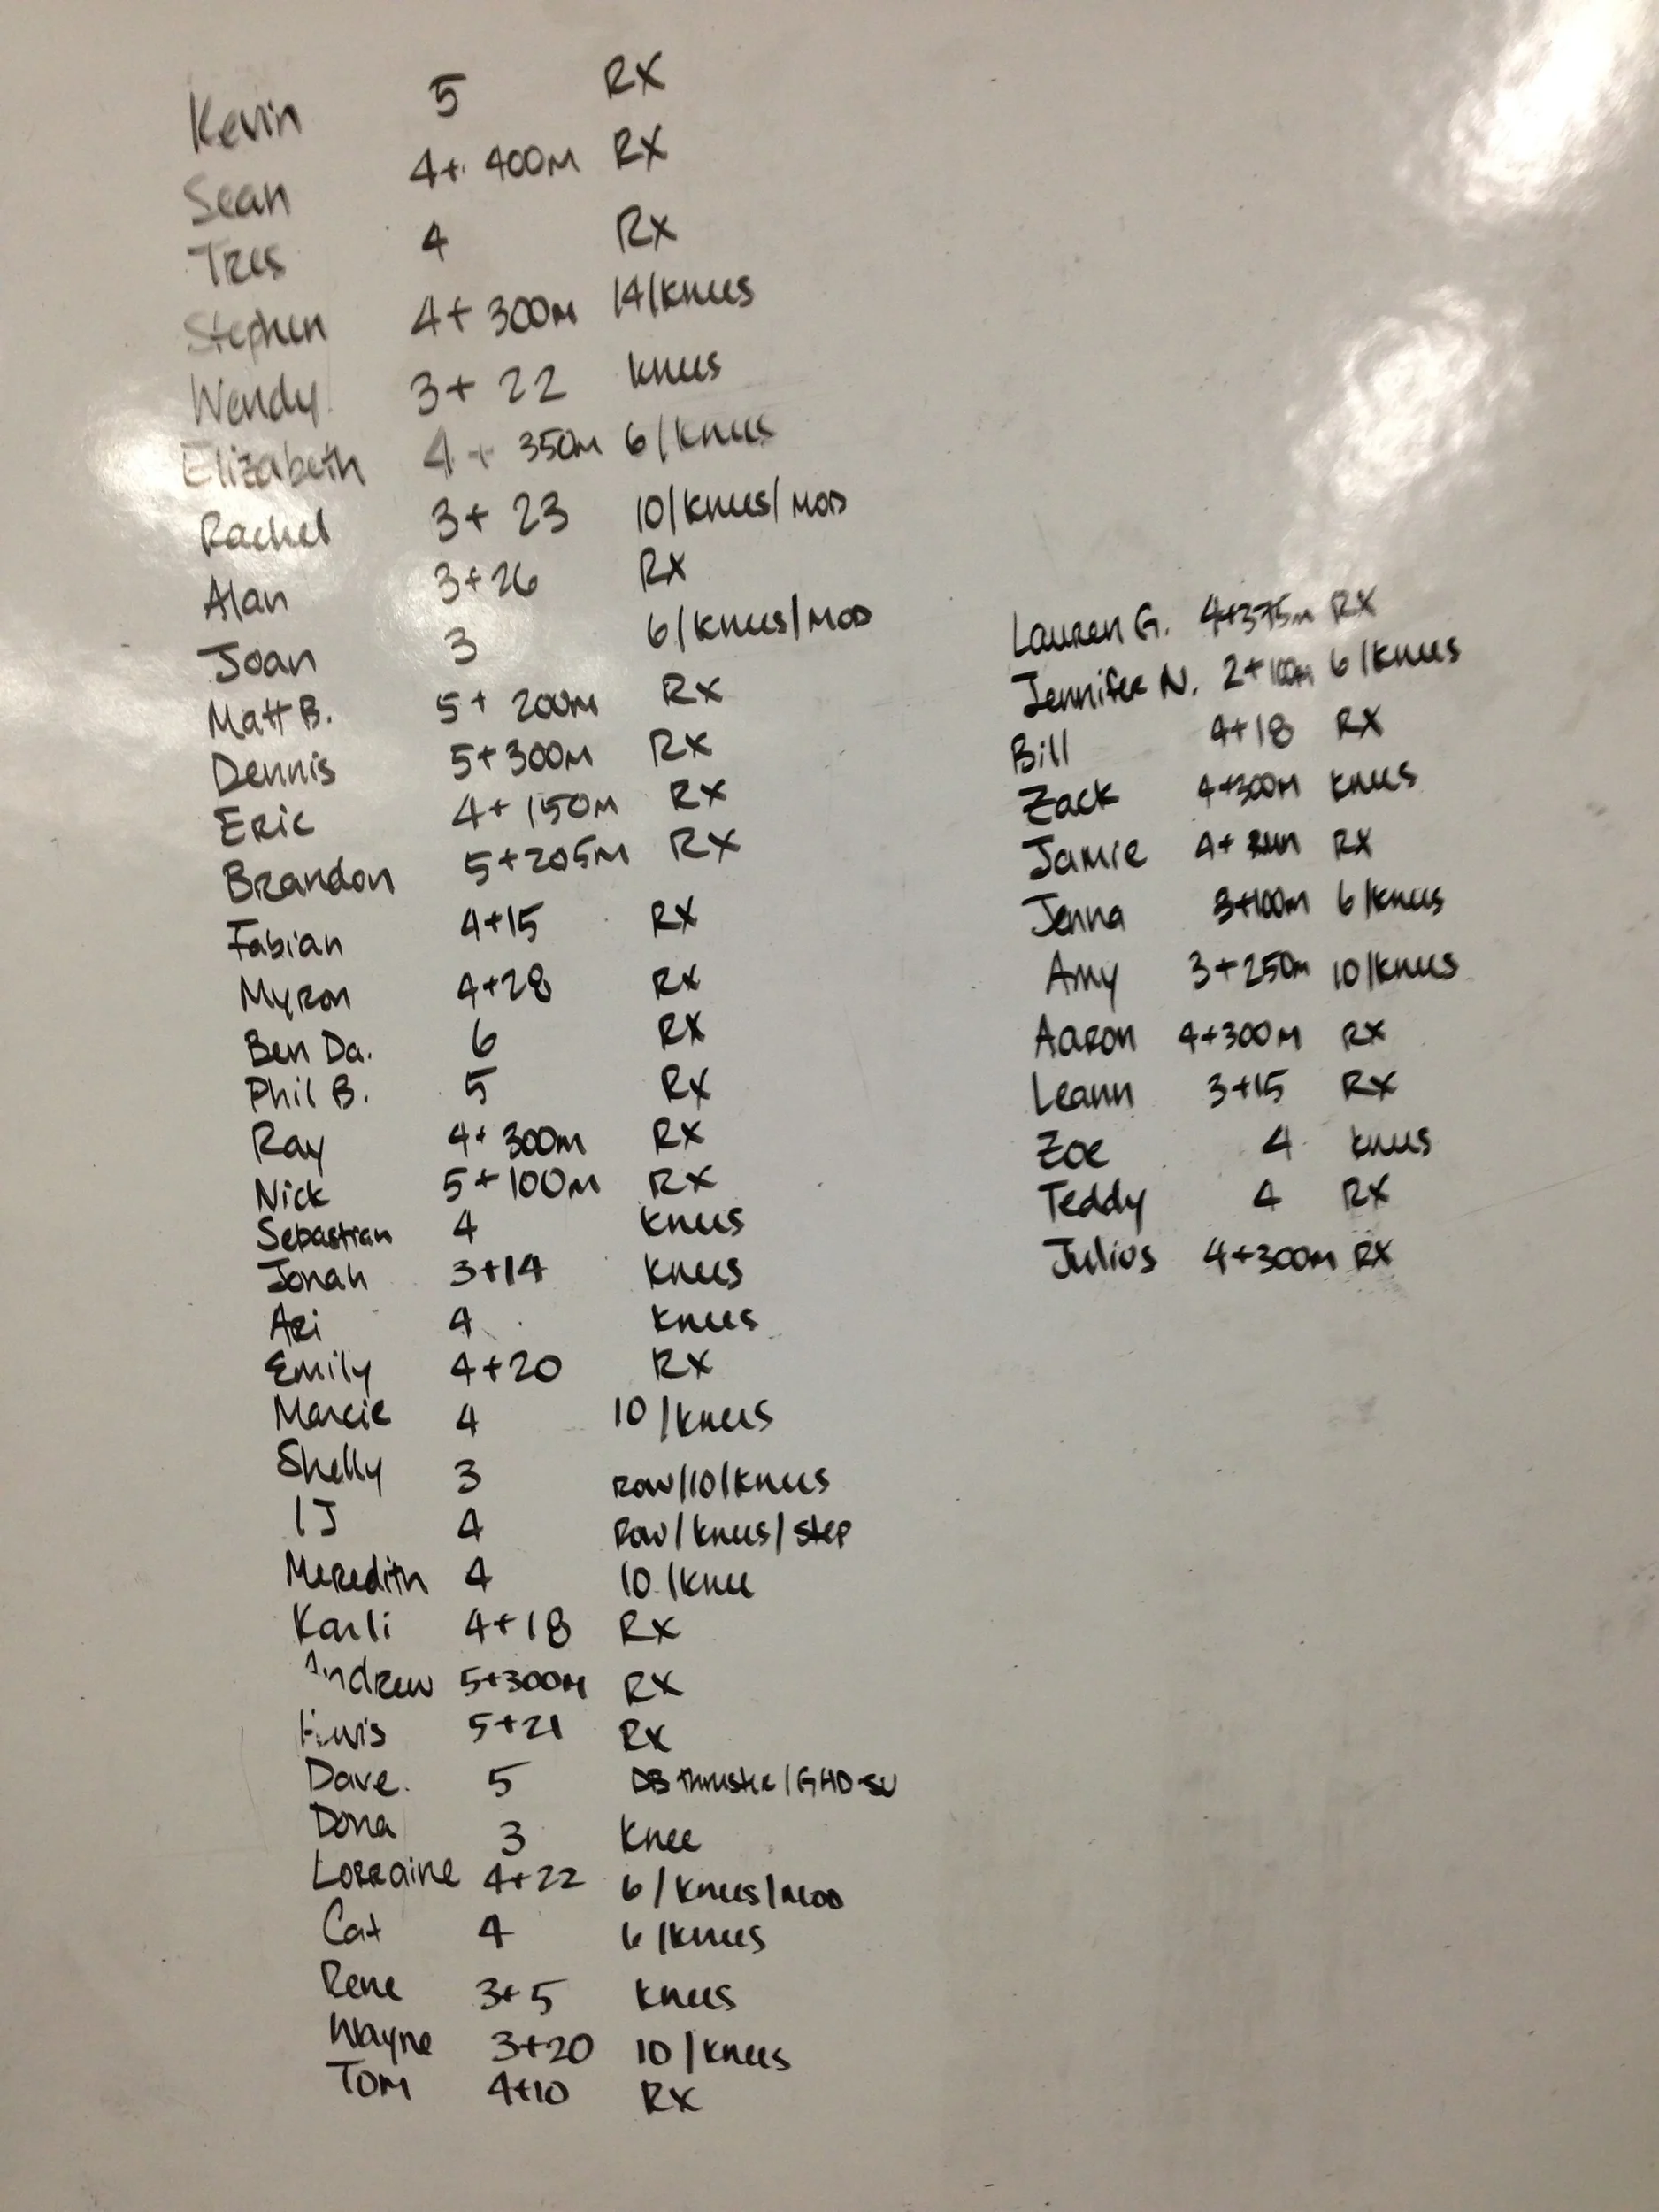 Kevin 5 RX
Sean 4+ 400m RX
Tres 4 RX
Stephen 4+ 300m 14/knees
Wendy 3+ 22 knees
Elizabeth 4+ 350m 6/knees
Rachel 3+ 23 10/knees/mod
Alan 3+26 RX
Joan 3 6/knees/mod
Matt B. 5+ 200m RX
Dennis 5+300m RX
Eric 4+ 150m RX
Brandon 5+205m RX
Fabian 4+15 RX
Myron 4+28 RX
Ben Da. 6 RX
Phil B. 5 RX
Ray 4+ 300m RX
Nick 5+100m RX
Sebastian 4 knees
Jonah 3+14 knees
Ari 4 knees
Emily 4+20 RX
Marcie 4 10/knees
Shelly 3 row/10/knees
IJ 4 Row/knees/step
Meredith 4 10/knee
Karli 4+18 RX
Andrew 5+300m RX
5+21 RX
Dave. 5 DB thruster/GHD-SU
Dona 3 knee
Lorraine 4+22 6/knees/mod
Cat 4 6/knees
Rene 3+5 knees
Wayne 3+20 10/knees
Tom 4+10 RX
Lauren G. 4+375m RX
Jennifer N. 2+100m 6/knees
Bill 4+18 RX
Zack 4+300m knees
Jamie 4+ run RX
Jenna 3+100m 6/knees
Amy 3+250m 10/knees
Aaron 4+300m RX
Leann 3+15 RX
Zoe 4 knees
Teddy 4 RX
Julius 4+300m RX